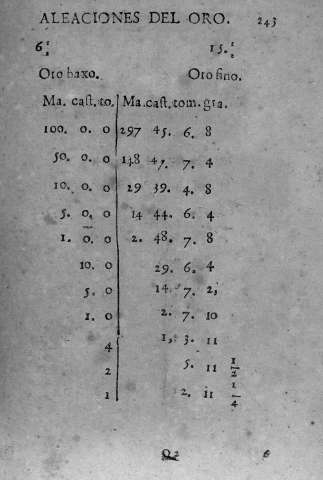 ALEACIONES DEL ORO. 243
6 1/2 15. 1/2
Oro baxo. Oro fino.
Ma. cast. to. Ma. cast. tom. gra.
100. 0. 0 297 45. 6. 8
50. 0. 0 148 47. 7. 4
10. 0. 0 29 39. 4. 8
5. 0. 0 14 44. 6. 4
1. 0. 0 2. 48. 7. 8
10. 0 29. 6. 4
5. 0 14. 7. 2
1. 0 2. 7. 10
4 1. 3. 11
2 5. 11 1/2
1 2. 11 1/4